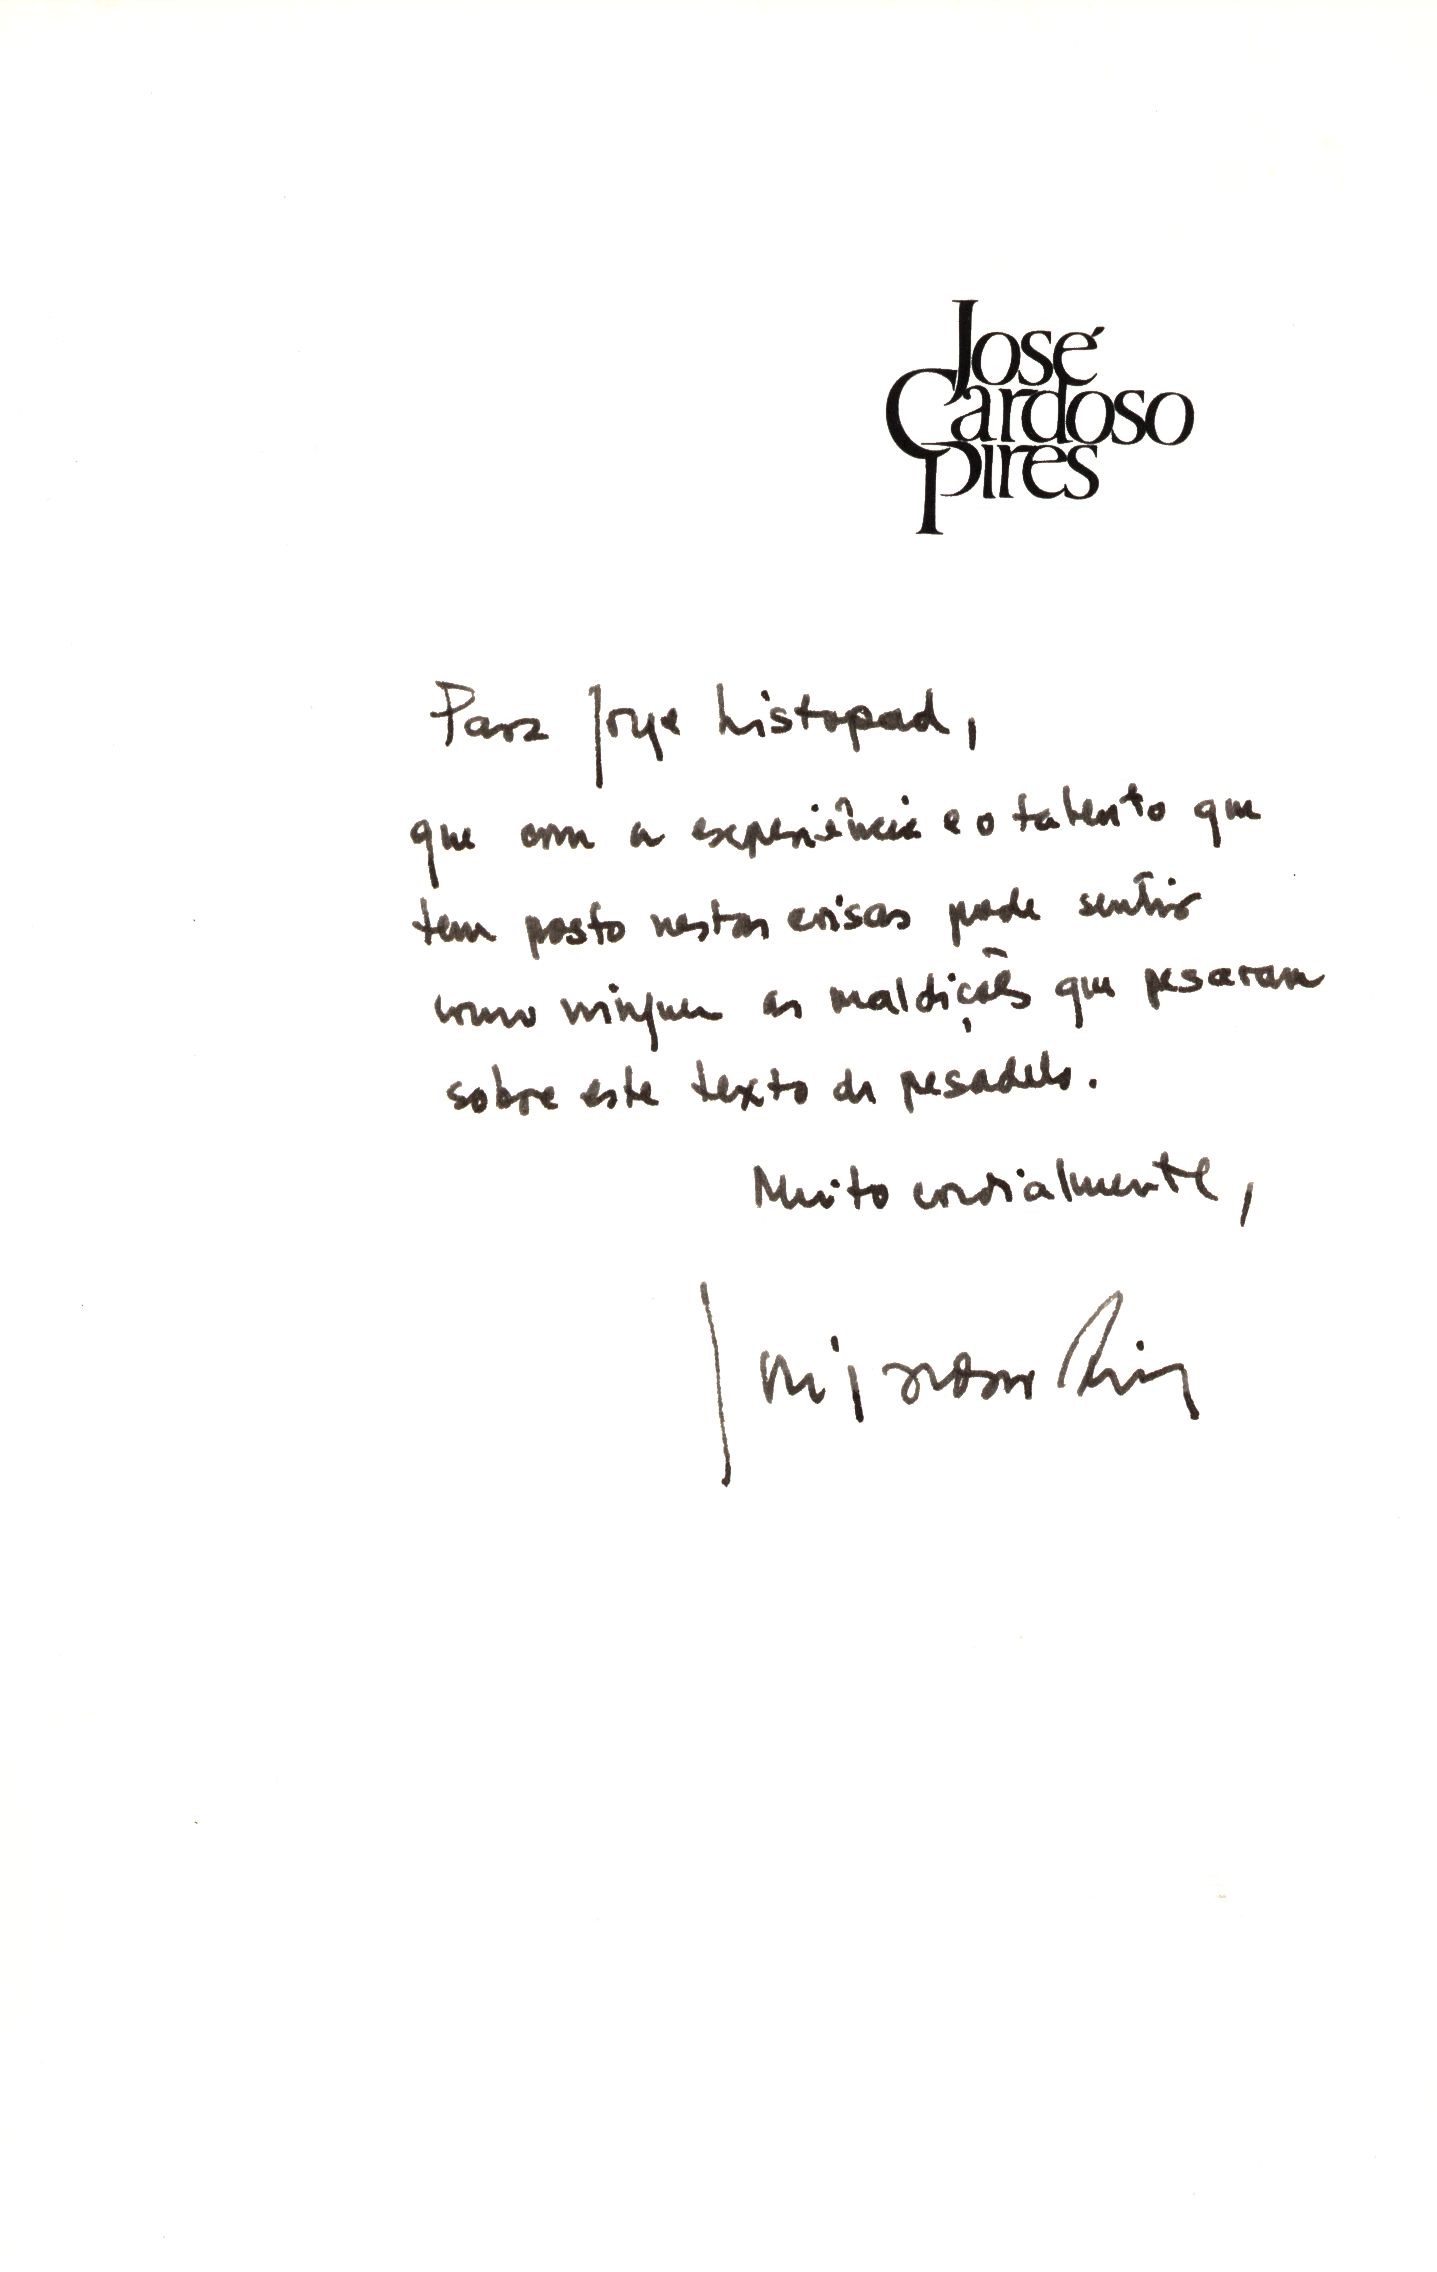 José
Cardoso
Pires
Para Jorge Listopad,
que com a experiência e o talento que
tem posto nestas coisas pode sentir
como ninguem as maldições que pesaram
sobre este texto de pesadelo.
Muito cordialmente,
José Cardoso Pires